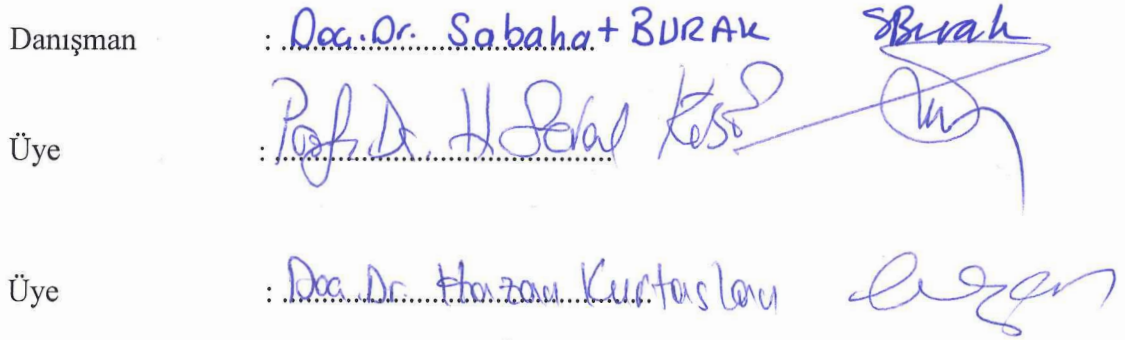 Danışman : Doç.Dr. Sabahat BURAK SBurak
Üye : Prof. Dr. H. Seval Köse
Üye : Doç. Dr. Hazan Kurtaslan